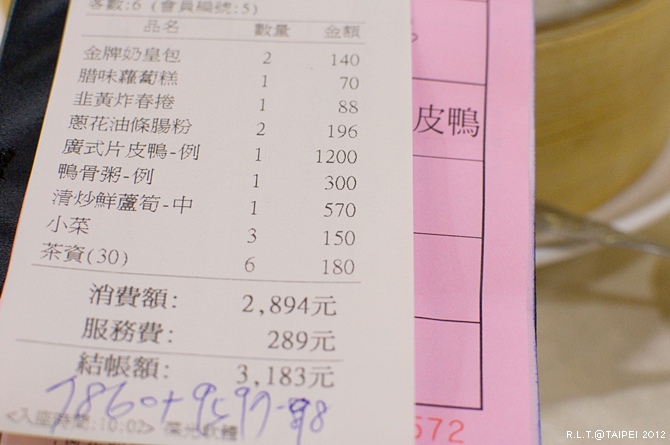 客數:6 (會員編號:5)
品名 數量 金額
金牌奶皇包 2 140
腊味蘿蔔糕 1 70
韭黃炸春捲 1 88
蔥花油條腸粉 2 196
廣式片皮鴨-例 1 1200
鴨骨粥-例 1 300
清炒鮮蘆筍-中 1 570
小菜 3 150
茶資(30) 6 180
消費額: 2,894元
服務費: 289元
結帳額: 3,183元
<入座時間:10:02>
皮鴨
572
R.L.T.@TAIPEI 2012